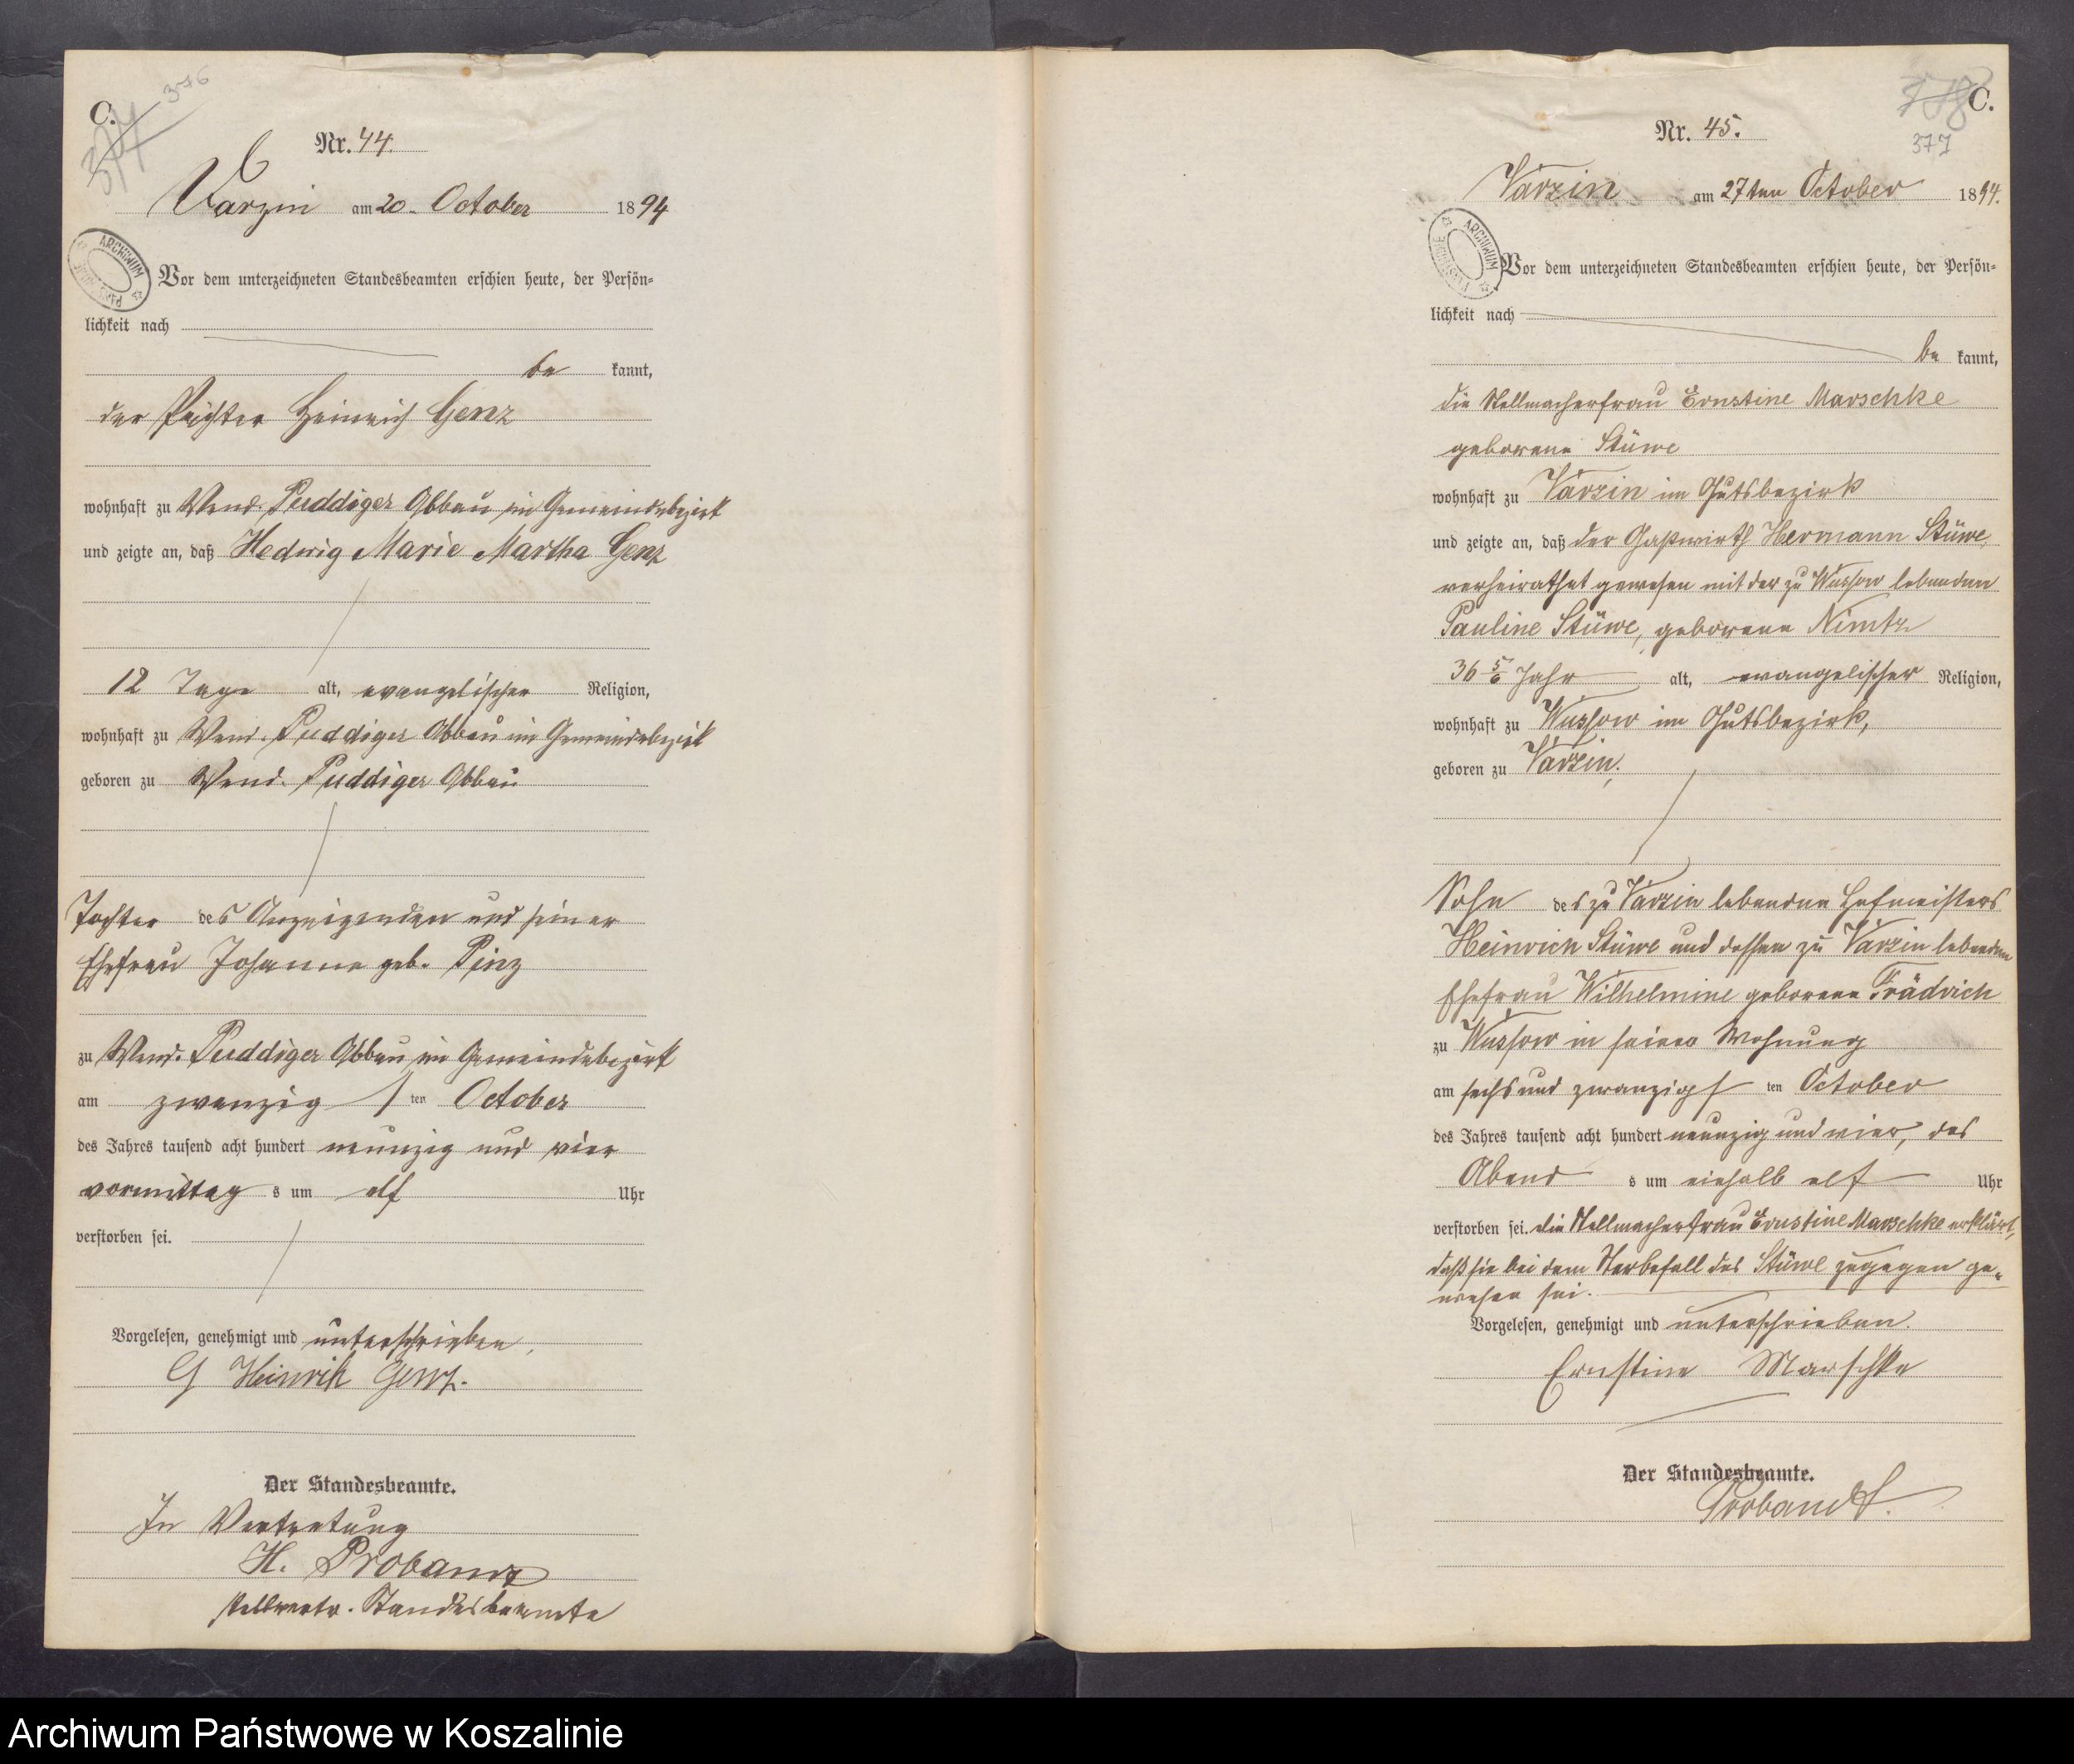 C.
377
376
Nr. 44.
Varzin am 20. October 1894
ARCHIWUM
Vor dem unterzeichneten Standesbeamten erschien heute, der Persön-
lichkeit nach
be kannt,
der Pächter Heinrich Genz
wohnhaft zu Wend. Puddiger Abbau im Gemeindebezirk
und zeigte an, daß Hedwig Marie Martha Genz
12 Tage alt, evangelischer Religion,
wohnhaft zu Wend. Puddiger Abbau im Gemeindebezirk
geboren zu Wend. Puddiger Abbau
Tochter des Anzeigenden und seiner
Ehefrau Johanne geb. Pinz
zu Wend. Puddiger Abbau im Gemeindebezirk
am zwanzigsten October
des Jahres tausend acht hundert neunzig und vier
vormittag s um elf Uhr
verstorben sei.
Vorgelesen, genehmigt und unterschrieben,
G Heinrih Genz.
Der Standesbeamte.
In Vertretung
H. Probandt
stellvertr. Standesbeamte
378
C.
377
Nr. 45.
Varzin am 27ten October 1894.
ARCHIWUM
Vor dem unterzeichneten Standesbeamten erschien heute, der Persön-
lichkeit nach
be kannt,
die Stellmacherfrau Ernstine Marschke
geborene Stüwe
wohnhaft zu Varzin im Gutsbezirk
und zeigte an, daß der Gastwirth Hermann Stüwe,
verheirathet gewesen mit der zu Wussow lebenden
Pauline Stüwe, geborene Nimtz
36 5/6 Jahr alt, evangelischer Religion,
wohnhaft zu Wussow im Gutsbezirk,
geboren zu Varzin,
Sohn des zu Varzin lebenden Hofmeisters
Heinrich Stüwe und dessen zu Varzin lebenden
Ehefrau Wilhelmine geborene Frädrich
zu Wussow in seiner Wohnung
am sechs und zwanzigsten October
des Jahres tausend acht hundert neunzig und vier, des
Abend s um einhalb elf Uhr
verstorben sei. die Stellmacherfrau Ernstine Marschke erklärt,
daß sie bei dem Sterbefall des Stüwe zugegen ge-
wesen sei.
Vorgelesen, genehmigt und unterschrieben.
Ernstine Marschke
Der Standesbeamte.
Probandt.
Archiwum Państwowe w Koszalinie